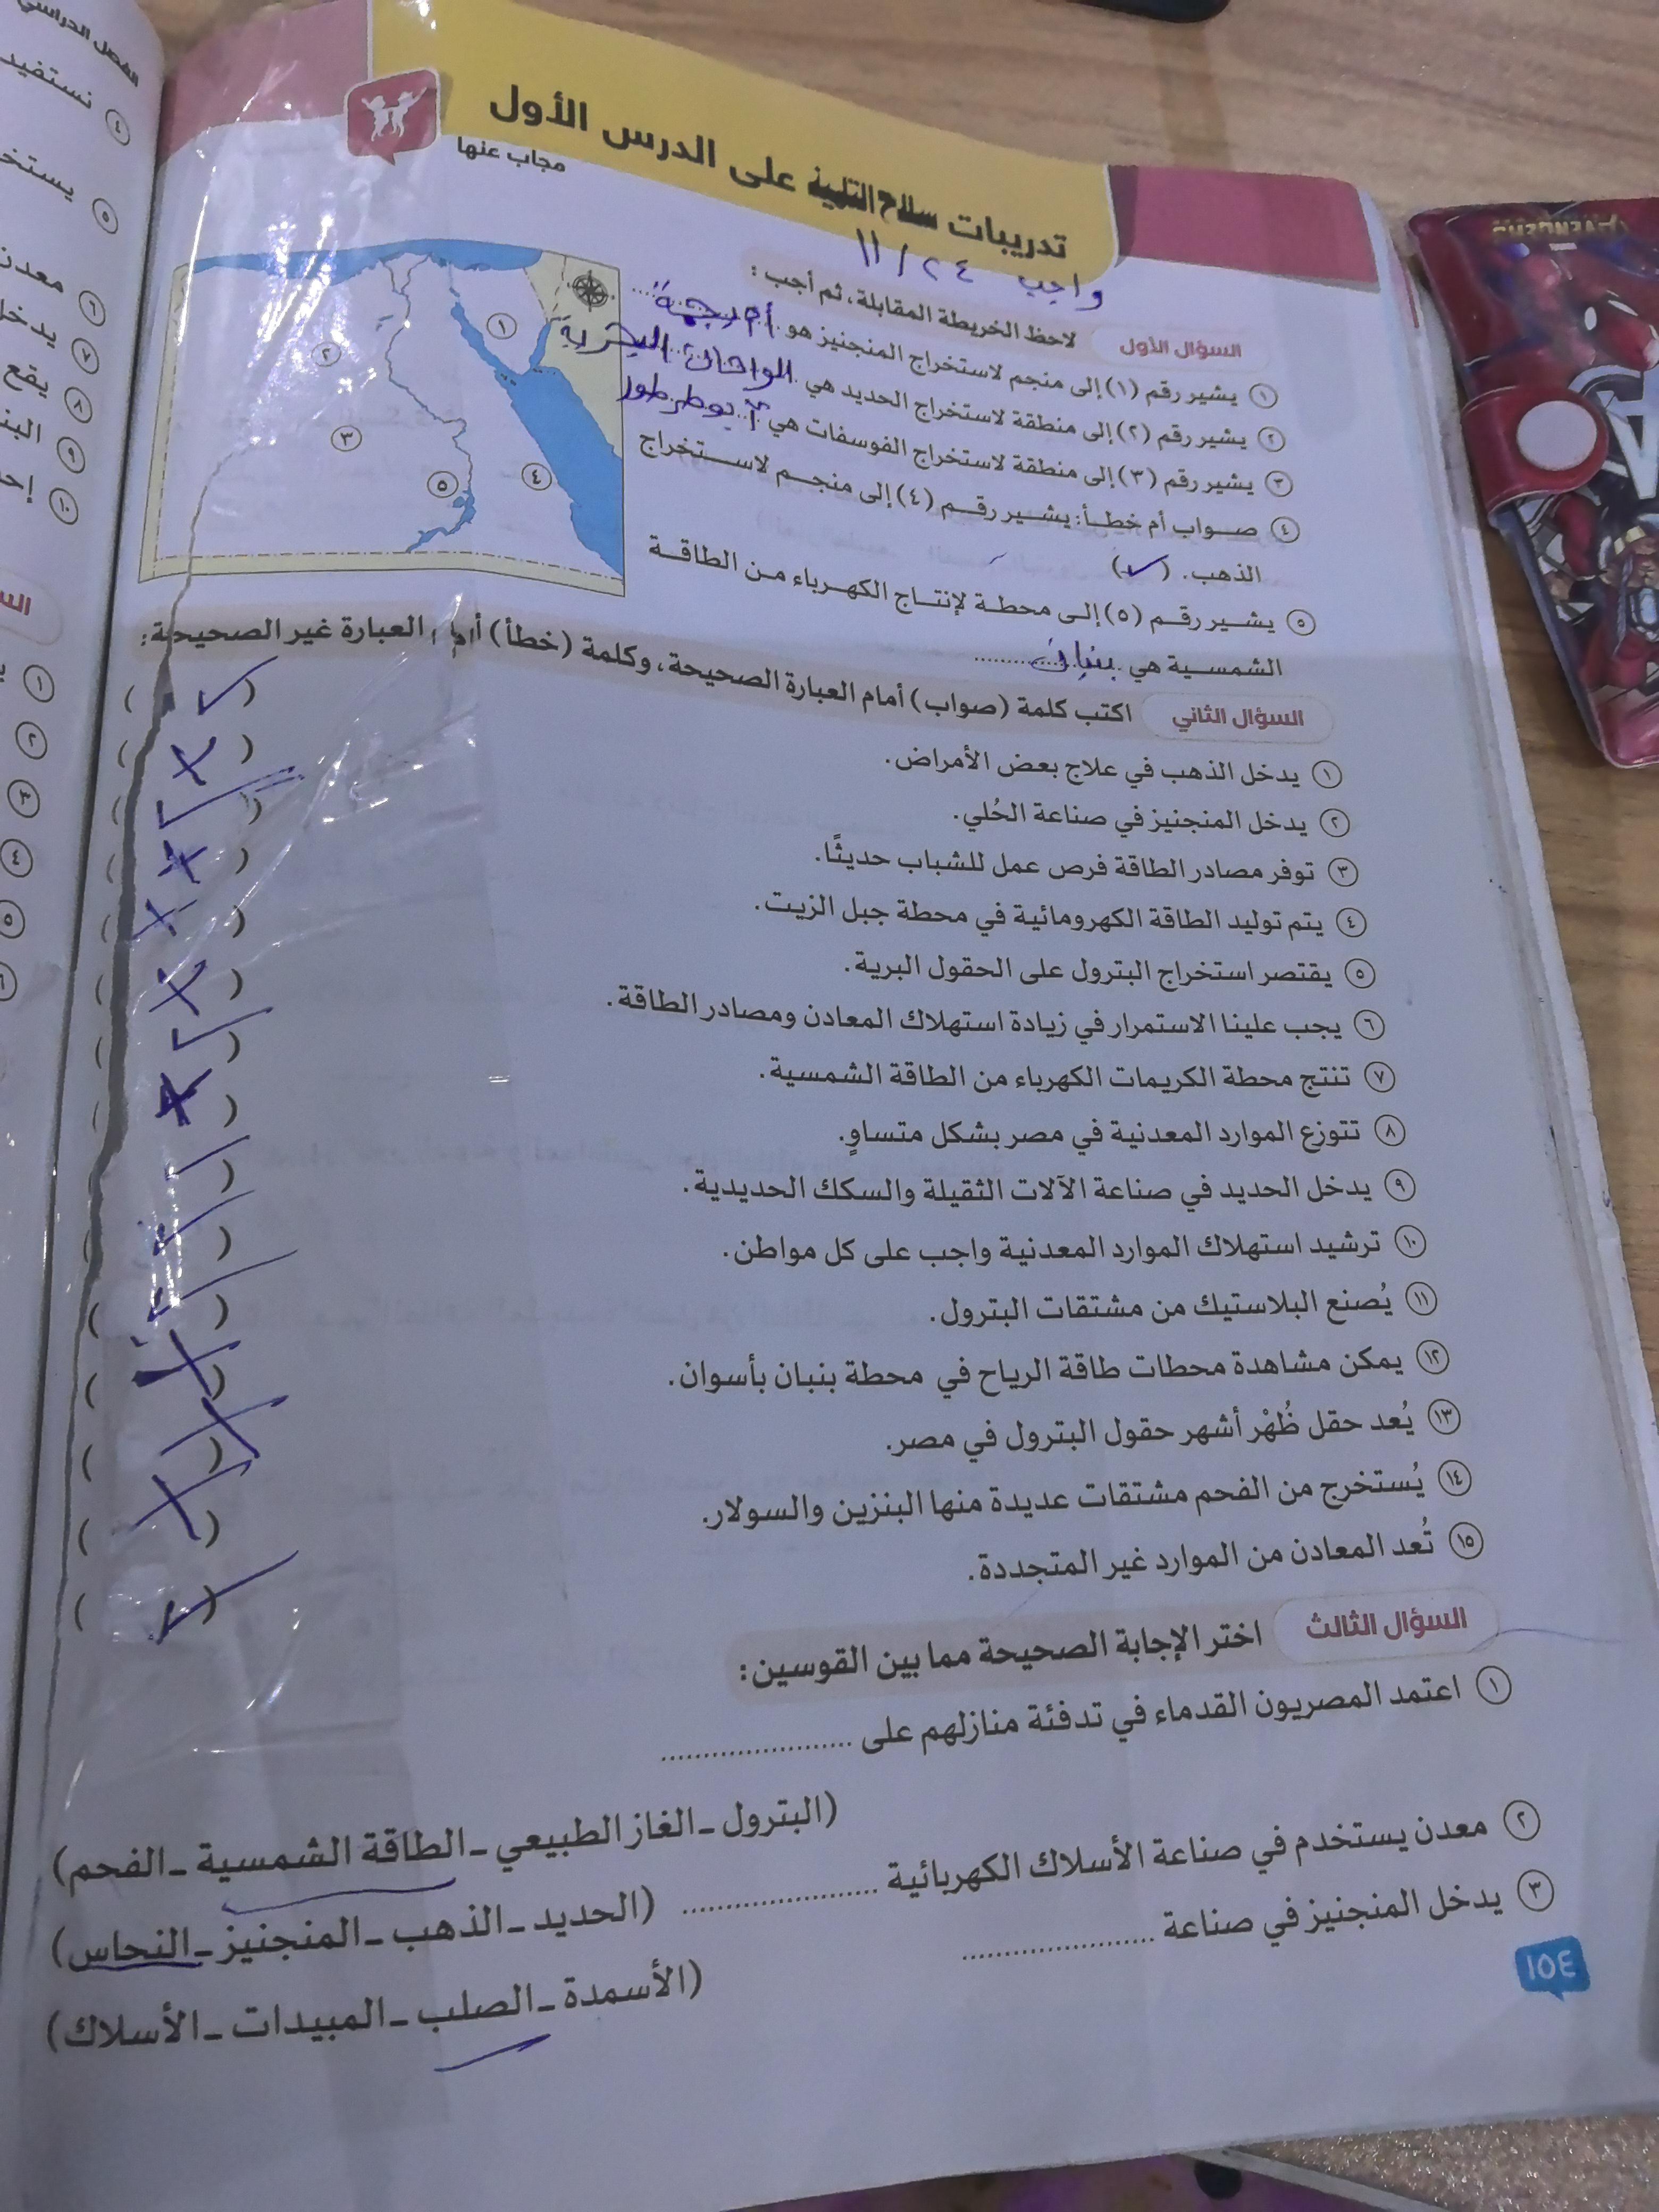 تدريبات سلاح التلميذ على الدرس الأول
مجاب عنها
واجب ٢٤ / ١١
السؤال الأول لاحظ الخريطة المقابلة، ثم أجب:
١ يشير رقم (١) إلى منجم لاستخراج المنجنيز هو أم بجمة
٢ يشير رقم (٢) إلى منطقة لاستخراج الحديد هي الواحات البحرية
٣ يشير رقم (٣) إلى منطقة لاستخراج الفوسفات هي أبو طرطور
٤ صواب أم خطأ: يشير رقم (٤) إلى منجم لاستخراج
الذهب. (✓)
٥ يشير رقم (٥) إلى محطة لإنتاج الكهرباء من الطاقة
الشمسية هي بنبان
١
٢
٣
٤
٥
السؤال الثاني اكتب كلمة (صواب) أمام العبارة الصحيحة، وكلمة (خطأ) أمام العبارة غير الصحيحة:
١ يدخل الذهب في علاج بعض الأمراض. (✓)
٢ يدخل المنجنيز في صناعة الحُلي. (✗)
٣ توفر مصادر الطاقة فرص عمل للشباب حديثًا. (✓)
٤ يتم توليد الطاقة الكهرومائية في محطة جبل الزيت. (✗)
٥ يقتصر استخراج البترول على الحقول البرية. (✗)
٦ يجب علينا الاستمرار في زيادة استهلاك المعادن ومصادر الطاقة. (✗)
٧ تنتج محطة الكريمات الكهرباء من الطاقة الشمسية. (✓)
٨ تتوزع الموارد المعدنية في مصر بشكل متساوٍ. (✗)
٩ يدخل الحديد في صناعة الآلات الثقيلة والسكك الحديدية. (✓)
١٠ ترشيد استهلاك الموارد المعدنية واجب على كل مواطن. (✓)
١١ يُصنع البلاستيك من مشتقات البترول. (✓)
١٢ يمكن مشاهدة محطات طاقة الرياح في محطة بنبان بأسوان. (✗)
١٣ يُعد حقل ظُهْر أشهر حقول البترول في مصر. (✗)
١٤ يُستخرج من الفحم مشتقات عديدة منها البنزين والسولار. (✗)
١٥ تُعد المعادن من الموارد غير المتجددة. (✓)
السؤال الثالث اختر الإجابة الصحيحة مما بين القوسين:
١ اعتمد المصريون القدماء في تدفئة منازلهم على ....................
(البترول ـ الغاز الطبيعي ـ الطاقة الشمسية ـ الفحم)
٢ معدن يستخدم في صناعة الأسلاك الكهربائية .................... (الحديد ـ الذهب ـ المنجنيز ـ النحاس)
٣ يدخل المنجنيز في صناعة .................... (الأسمدة ـ الصلب ـ المبيدات ـ الأسلاك)
١٥٤
الفصل الدراسي
٤ نستفيد
٥
٦ معدن
٧
٨ يقع
٩
١٠
١
٢
٣
٤
٥
AVENGERS